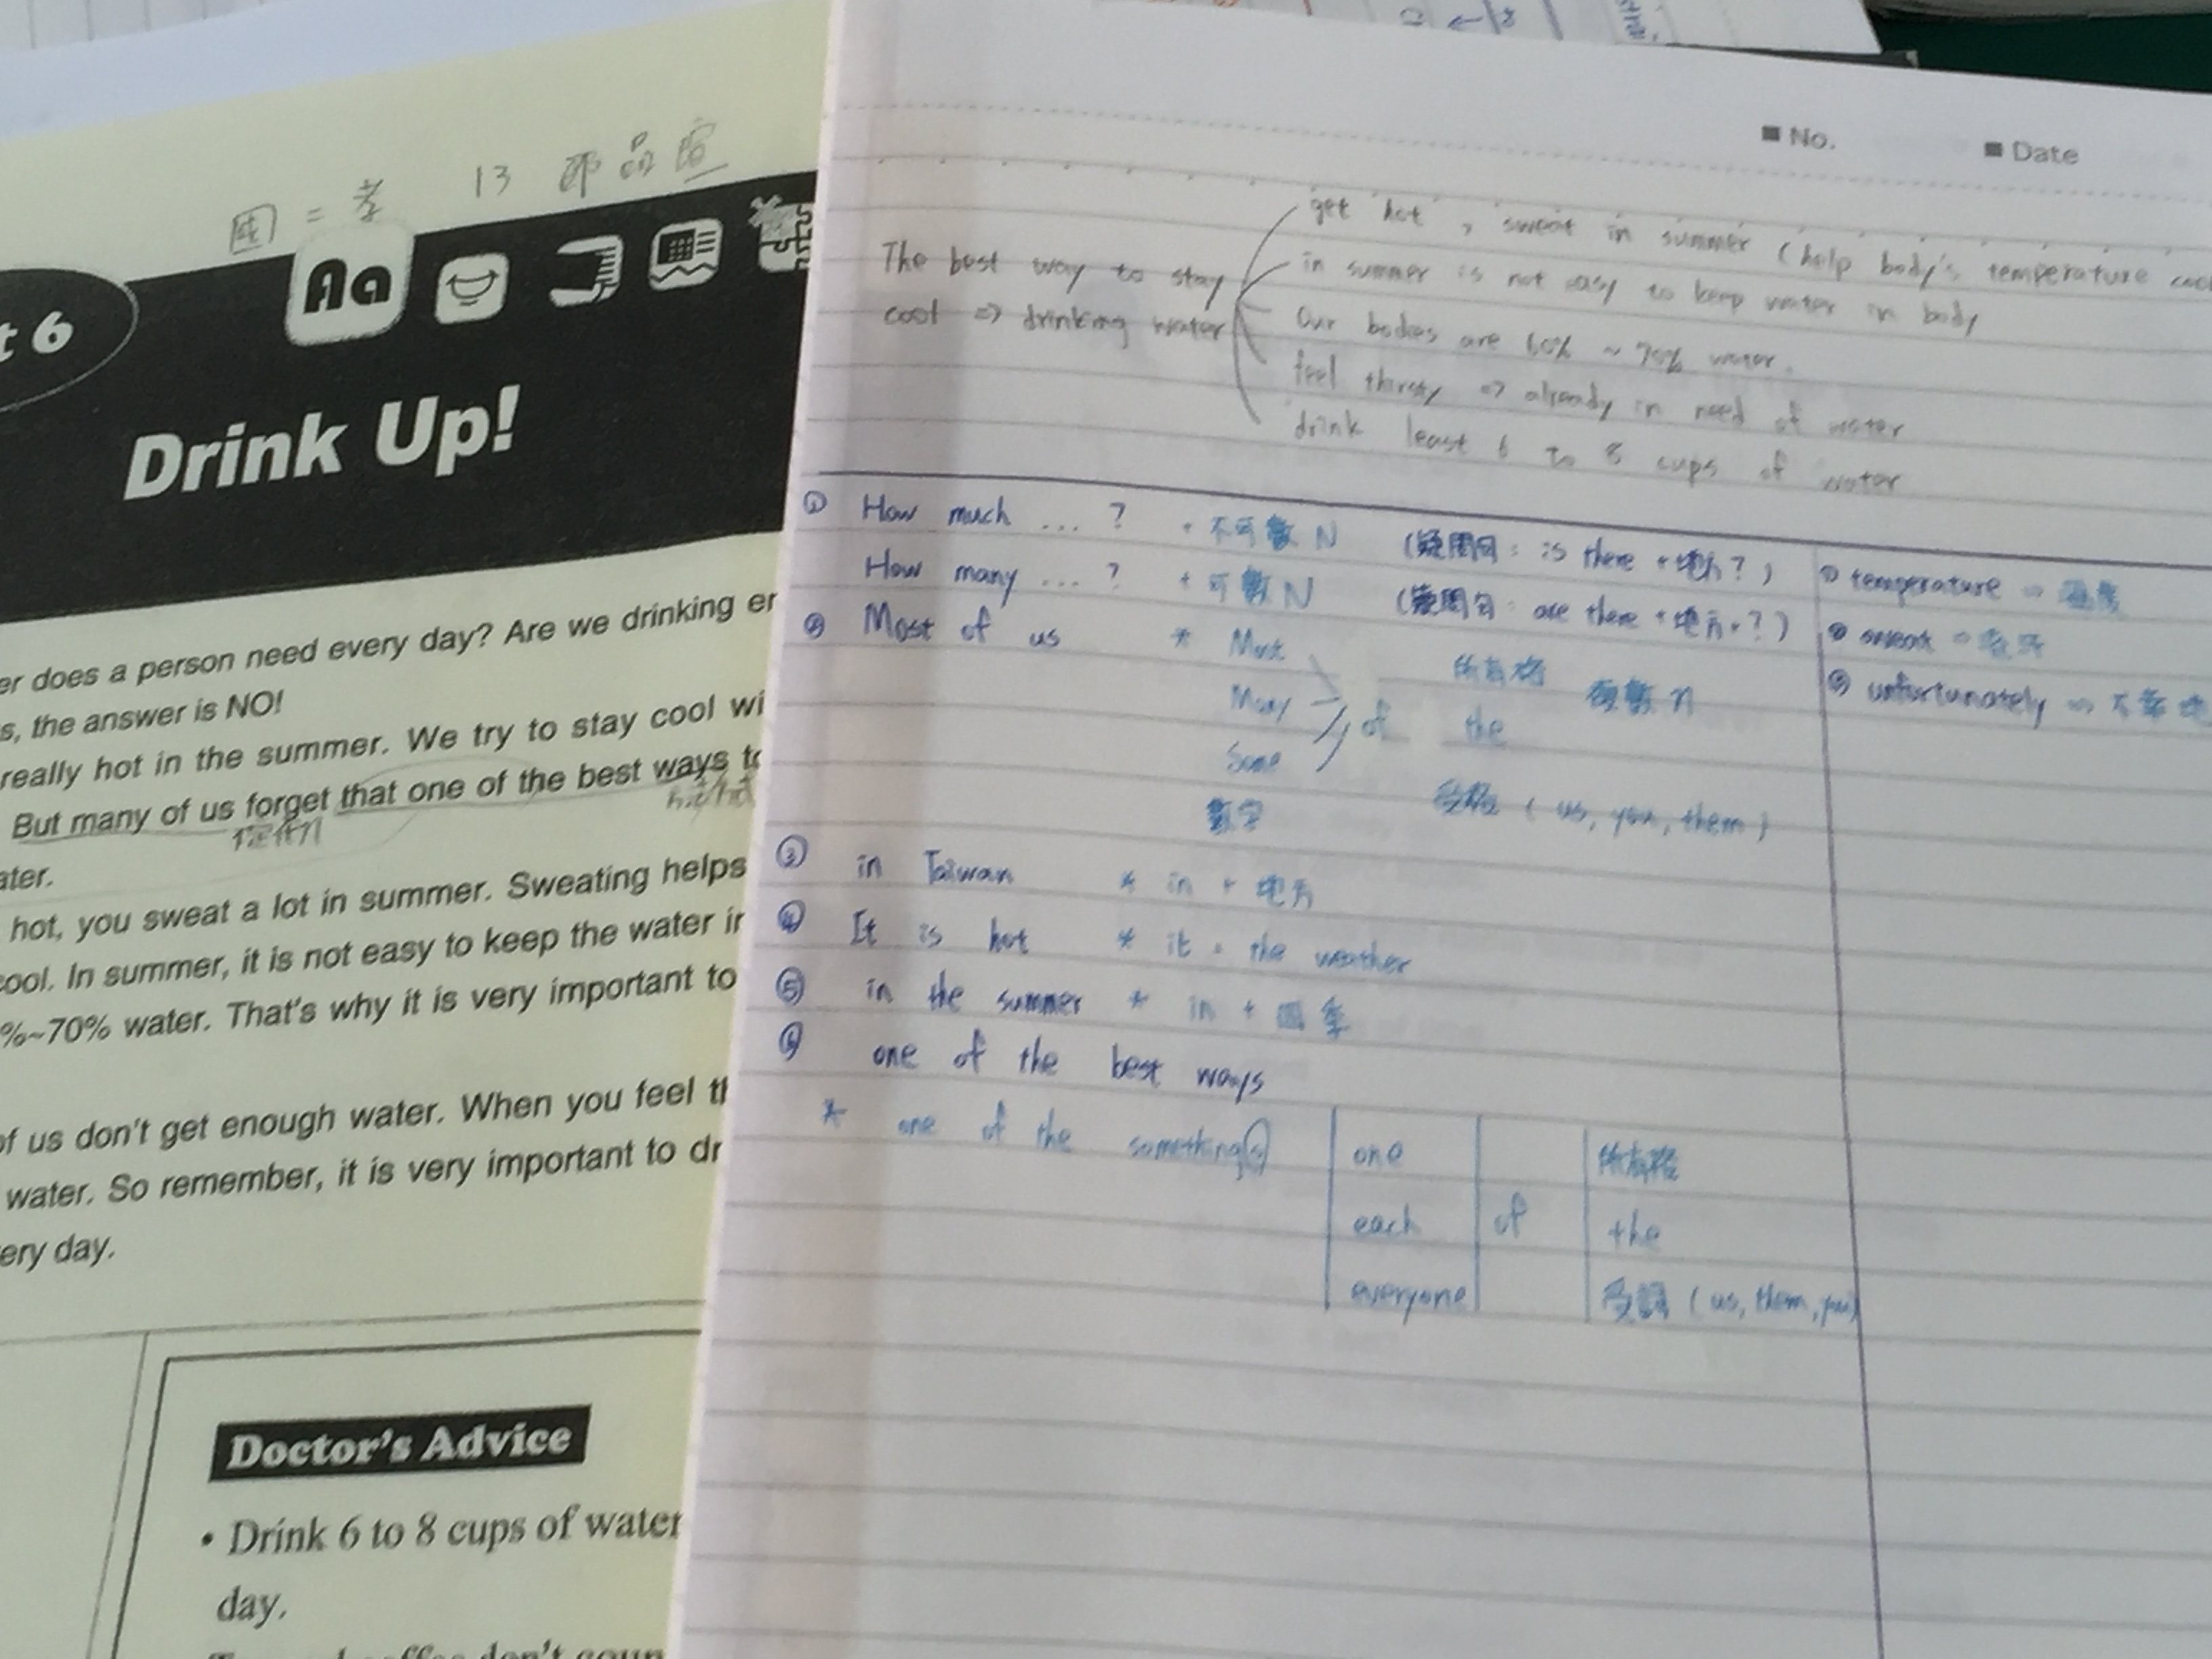 國二孝 13 邵品瑄
t 6
Aa
Drink Up!
er does a person need every day? Are we drinking er
s, the answer is NO!
really hot in the summer. We try to stay cool wi
But many of us forget that one of the best ways to
ater.
hot, you sweat a lot in summer. Sweating helps
cool. In summer, it is not easy to keep the water ir
%~70% water. That's why it is very important to
of us don't get enough water. When you feel th
water. So remember, it is very important to dr
ery day.
Doctor's Advice
• Drink 6 to 8 cups of water
day.
coffee don't coun
■ No. ■ Date
The best way to stay
cool => drinking water
get hot, sweat in summer (help body's temperature coo
in summer is not easy to keep water in body
Our bodies are 60% ~ 70% water.
feel thirsty => already in need of water
drink least 6 to 8 cups of water
① How much ... ? + 不可數 N (疑問句: is there + 地方?)
How many ... ? + 可數 N (疑問句: are there + 地方?)
② Most of us * Most
Many of the
Some
所有格 複數 n
數字 受格 (us, you, them)
③ in Taiwan * in + 地方
④ It is hot * it = the weather
⑤ in the summer * in + 四季
⑥ one of the best ways
* one of the something(s)
one 所有格
each of the
everyone 受詞 (us, them, you)
① temperature => 溫度
② sweat =>
③ unfortunately => 不幸地